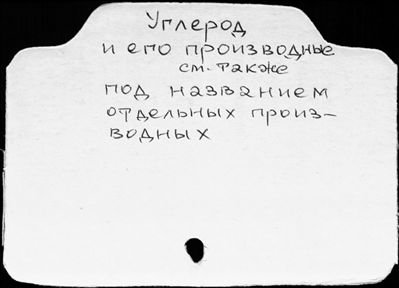 Углерод
и его производные
см. также
под названием
отдельных произ-
водных